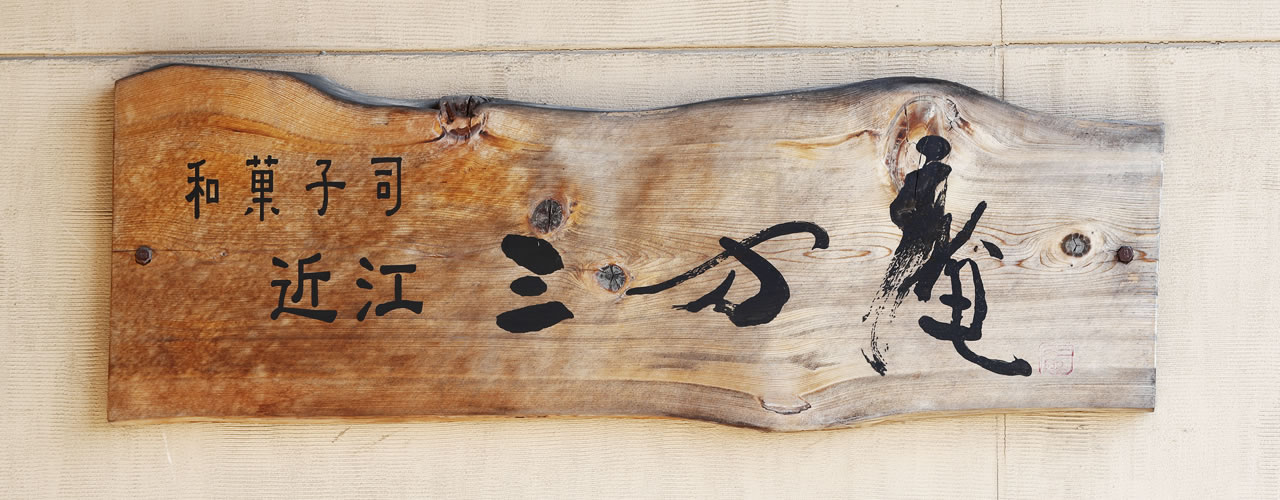 和菓子司
近江
三万庵